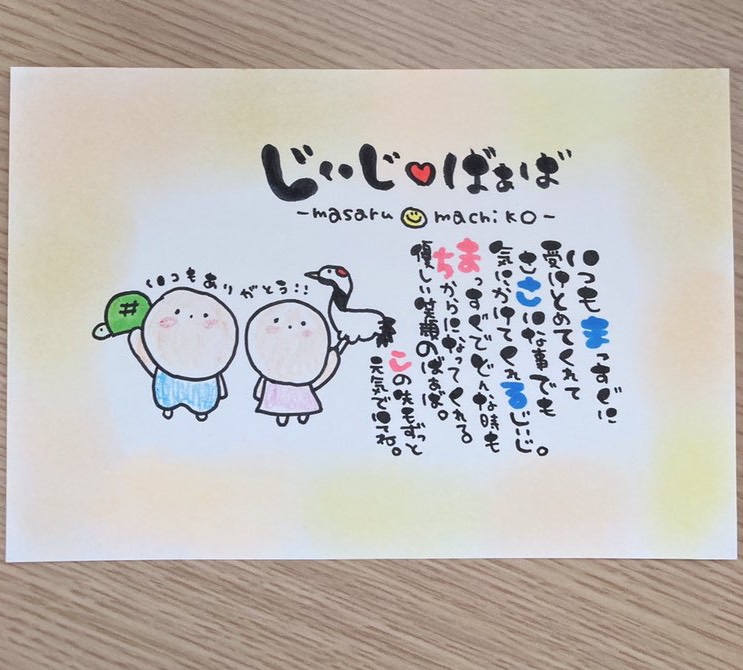 じぃじ♥ばぁば
-masaru☺machiko-
いつもまっすぐに
受けとめてくれて
ささいな事でも
気にかけてくれるじぃじ。
まっすぐでどんな時も
ちからになってくれる
優しい笑顔のばぁば。
この先もずっと
元気でいてね。
いつもありがとう!!